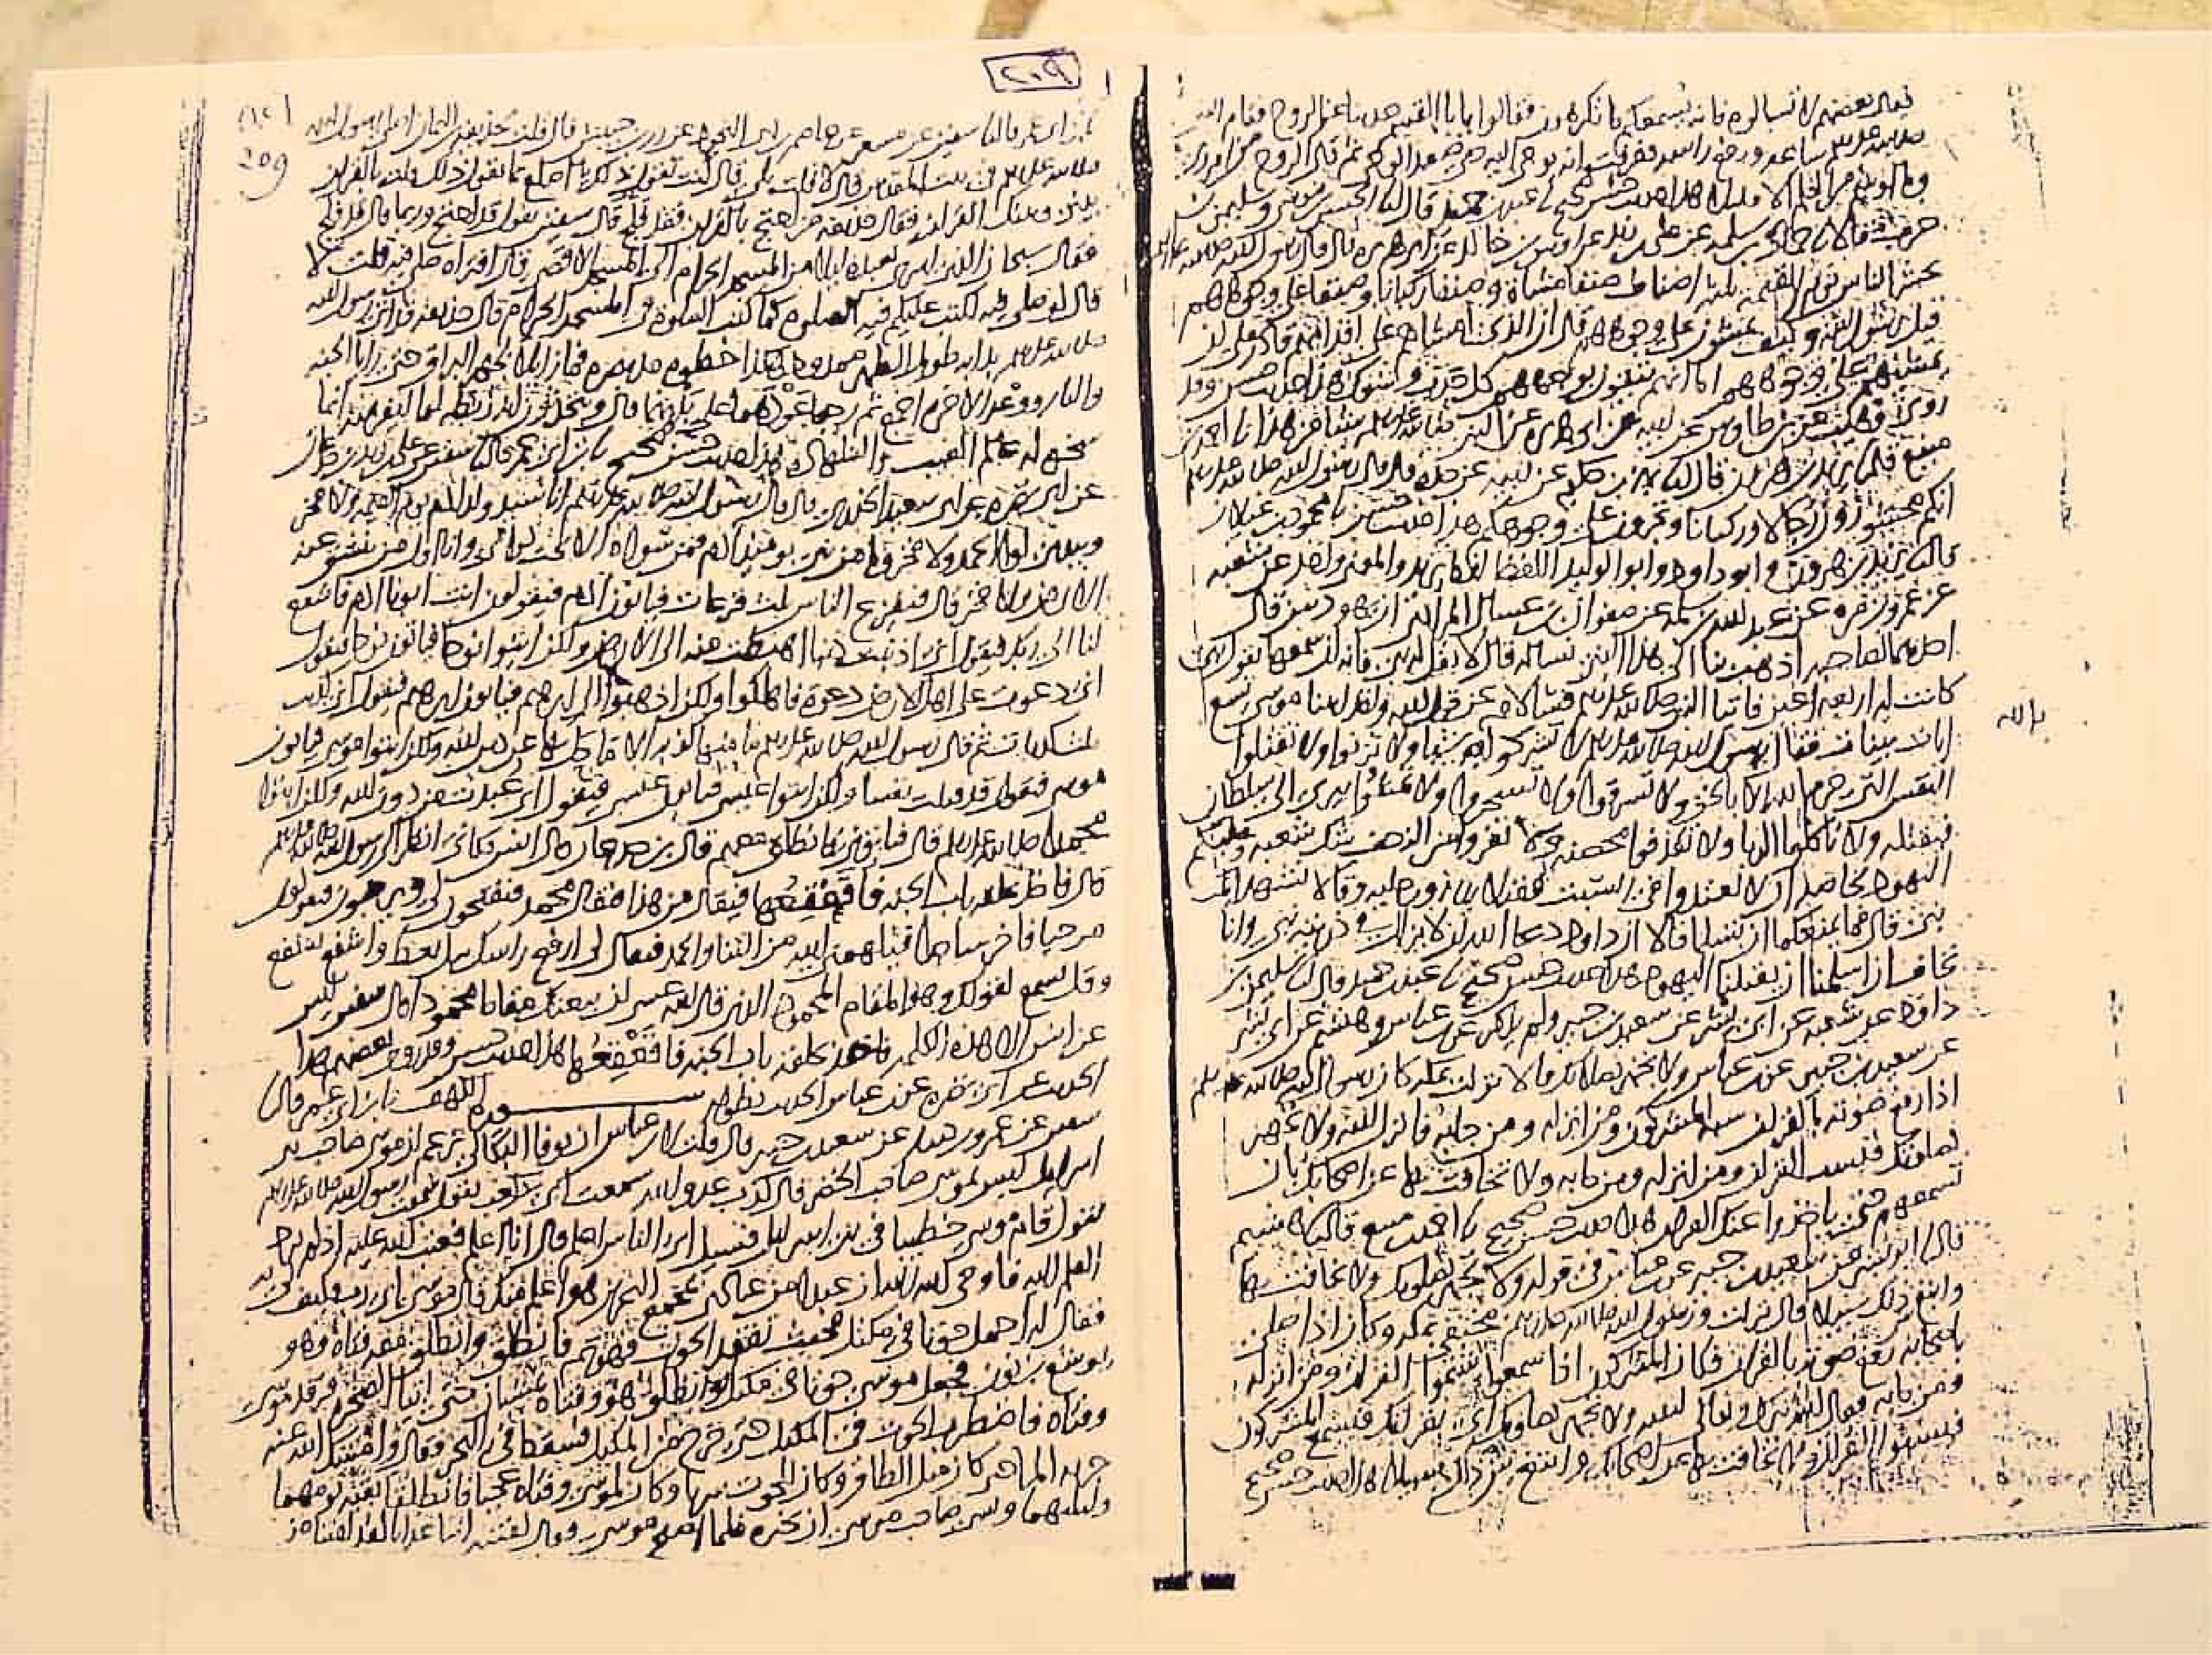 فقال بعضهم لا تسالوه فانه يسمعكم ما تكرهون فقالوا يا ابا القسم حدثنا عن الروح فقام النبي
صلى الله عليه وسلم ساعه ورفع راسه فعرفت انه يوحى اليه حتى صعد الوحى ثم قال الروح من امر ربى
وما اوتيتم من العلم الا قليلا هذا حديث حسن صحيح نا عبد بن حميد قال نا الحسن بن موسى وسليمن بن
حرب قالا نا حماد بن سلمه عن على بن زيد عن اوس بن خالد عن ابى هريره قال قال رسول الله صلى الله عليه
يحشر الناس يوم القيمه ثلثه اصناف صنفا مشاة وصنفا ركبانا وصنفا على وجوههم
قيل يرسول الله وكيف يمشون على وجوههم قال ان الذى امشاهم على اقدامهم قادر على ان
يمشيهم على وجوههم اما انهم يتقون بوجوههم كل حدب وشوك هذا حديث حسن وقد
روى وهيب عن بن طاوس عن ابيه عن ابى هريره عن النبى صلى الله عليه وسلم شيا من هذا نا احمد بن
منيع قال نا يزيد بن هرون قال نا بهز بن حكيم عن ابيه عن جده قال قال رسول الله صلى الله عليه وسلم
انكم محشورون رجالا وركبانا وتجرون على وجوهكم هذا حديث حسن نا محمود بن غيلان
قال نا يزيد بن هرون وابو داود وابو الوليد اللفظ لفظ يزيد والمعنى واحد عن شعبه
عن عمرو بن مره عن عبد الله بن سلمه عن صفوان بن عسال المرادى ان يهوديين قال
احدهما لصاحبه اذهب بنا الى هذا النبى نساله قال لا تقل له نبى فانه ان سمعها تقول نبى
كانت له اربعه اعين فاتيا النبى صلى الله عليه وسلم فسالاه عن قول الله ولقد اتينا موسى تسع
ايات بينات فقال رسول الله صلى الله عليه وسلم لا تشركوا بالله شيا ولا تزنوا ولا تقتلوا
بالله
النفس التى حرم الله الا بالحق ولا تسرقوا ولا تسحروا ولا تمشوا ببرى الى سلطان
فيقتله ولا تاكلوا الربا ولا تقذفوا محصنه ولا تفروا من الزحف شك شعبه وعليكم
اليهود خاصه ان لا تعتدوا فى السبت فقبلا يديه ورجليه وقالا نشهد انك
نبى قال فما يمنعكما ان تسلما قالا ان داود دعا الله ان لا يزال فى ذريته نبى وانا
نخاف ان اسلمنا ان يقتلنا اليهود هذا حديث حسن صحيح نا عبد بن حميد قال نا سليمن بن
داود عن شعبه عن ابى بشر عن سعيد بن جبير ولم يذكر عن بن عباس وهشيم عن ابى بشر
عن سعيد بن جبير عن بن عباس ولا تجهر بصلاتك قال نزلت بمكه كان رسول الله صلى الله عليه وسلم
اذا رفع صوته بالقران سبه المشركون ومن انزله ومن جا به فانزل الله ولا تجهر
بصلاتك فيسب القران ومن انزله ومن جا به ولا تخافت بها عن اصحابك بان
تسمعهم حتى ياخذوا عنك القران هذا حديث حسن صحيح نا احمد بن منيع قال نا هشيم
قال نا ابو بشر عن سعيد بن جبير عن بن عباس فى قوله ولا تجهر بصلوتك ولا تخافت بها
وابتغ بين ذلك سبيلا قال نزلت ورسول الله صلى الله عليه وسلم مختفى بمكه وكان اذا صلى
باصحابه رفع صوته بالقران فكان المشركون اذا سمعوا شتموا القران ومن انزله
ومن جا به فقال الله تبارك وتعالى لنبيه ولا تجهر بصلوتك اى بقراتك فيسمع المشركون
فيسبوا القران ولا تخافت بها عن اصحابك وابتغ بين ذلك سبيلا هذا حديث حسن صحيح
٢٠٩
209
نا بن ابى عمر قال نا سفين عن مسعر عن عاصم بن ابى النجود عن زر بن حبيش قال قلت لحذيفه بن اليمان اصلى رسول الله
صلى الله عليه وسلم فى بيت المقدس قال لا قلت بلى قال انت تقول ذلك يا اصلع بما تقول ذلك قلت بالقران
بينى وبينك القران فقال حذيفه من احتج بالقران فقد فلج قال سفين يقول قد احتج وربما قال قد فلج
فقال سبحان الذى اسرى بعبده ليلا من المسجد الحرام الى المسجد الاقصى قال افتراه صلى فيه قلت لا
قال لو صلى فيه لكتب عليكم فيه الصلوه كما كتبت الصلوه فى المسجد الحرام قال حذيفه قد اتى رسول الله
صلى الله عليه وسلم بدابه طويل الظهر ممدوده هكذا خطوه مد بصره فما زايلا ظهر البراق حتى رايا الجنه
والنار ووعد الاخره اجمع ثم رجعا عودهما على بدئهما قال ويتحدثون انه ربطه لما ليفر منه انما
سخره له عالم الغيب والشهاده هذا حديث حسن صحيح نا بن ابى عمر قال نا سفين عن على بن زيد بن جدعان
عن ابى نضره عن ابى سعيد الخدرى قال قال رسول الله صلى الله عليه وسلم انا سيد ولد ادم يوم القيمه ولا فخر
وبيدى لواء الحمد ولا فخر وما من نبى يومئذ ادم فمن سواه الا تحت لوائى وانا اول من تنشق عنه
الارض ولا فخر قال فيفزع الناس ثلث فزعات فياتون ادم فيقولون انت ابونا ادم فاشفع
لنا الى ربك فيقول انى اذنبت ذنبا اهبطت منه الى الارض ولكن ايتوا نوحا فياتون نوحا فيقول
انى دعوت على اهل الارض دعوة فاهلكوا ولكن اذهبوا الى ابرهيم فياتون ابرهيم فيقول انى كذبت
ثلث كذبات ثم قال رسول الله صلى الله عليه وسلم ما منها كذبه الا ما حل بها عن دين الله ولكن ايتوا موسى فياتون
موسى فيقول قد قتلت نفسا ولكن ايتوا عيسى فياتون عيسى فيقول انى عبدت من دون الله ولكن ايتوا
محمدا صلى الله عليه وسلم قال فياتونى فانطلق معهم قال بن جدعان قال انس فكانى انظر الى رسول الله صلى الله عليه وسلم
قال فاخذ بحلقه باب الجنه فاقعقعها فيقال من هذا فيقال محمد فيفتحون لى ويرحبون فيقولون
مرحبا فاخر ساجدا فيلهمنى الله من الثنا والحمد فيقال لى ارفع راسك سل تعط واشفع تشفع
وقل يسمع لقولك وهو المقام المحمود الذى قال الله عسى ان يبعثك ربك مقاما محمودا قال سفين ليس
عن انس الا هذه الكلمه فاخذ بحلقه باب الجنه فاقعقعها هذا حديث حسن وقد روى بعضهم هذا
الحديث عن ابى نضره عن بن عباس الحديث بطوله سوره الكهف نا بن ابى عمر قال نا
سفين عن عمرو بن دينار عن سعيد بن جبير قال قلت لابن عباس ان نوفا البكالى يزعم ان موسى صاحب بنى
اسرايل ليس بموسى صاحب الخضر قال كذب عدو الله سمعت ابى بن كعب يقول سمعت رسول الله صلى الله عليه وسلم
يقول قام موسى خطيبا فى بنى اسرايل فسيل اى الناس اعلم قال انا اعلم فعتب الله عليه اذ لم يرد
العلم اليه فاوحى الله اليه ان عبدا من عبادى بمجمع البحرين هو اعلم منك قال موسى اى رب فكيف لى به
فقال له احمل حوتا فى مكتل فحيث تفقد الحوت فهو ثم فانطلق وانطلق معه فتاه وهو
يوشع بن نون فجعل موسى حوتا فى مكتل فانطلق هو وفتاه يمشيان حتى اتيا الصخره فرقد موسى
وفتاه فاضطرب الحوت فى المكتل حتى خرج من المكتل فسقط فى البحر قال وامسك الله عنه
جريه الما حتى كان مثل الطاق وكان للحوت سربا وكان لموسى وفتاه عجبا فانطلقا بقيه يومهما
وليلتهما ونسى صاحب موسى ان يخبره فلما اصبح موسى قال لفتاه اتنا غدانا لقد لقينا من